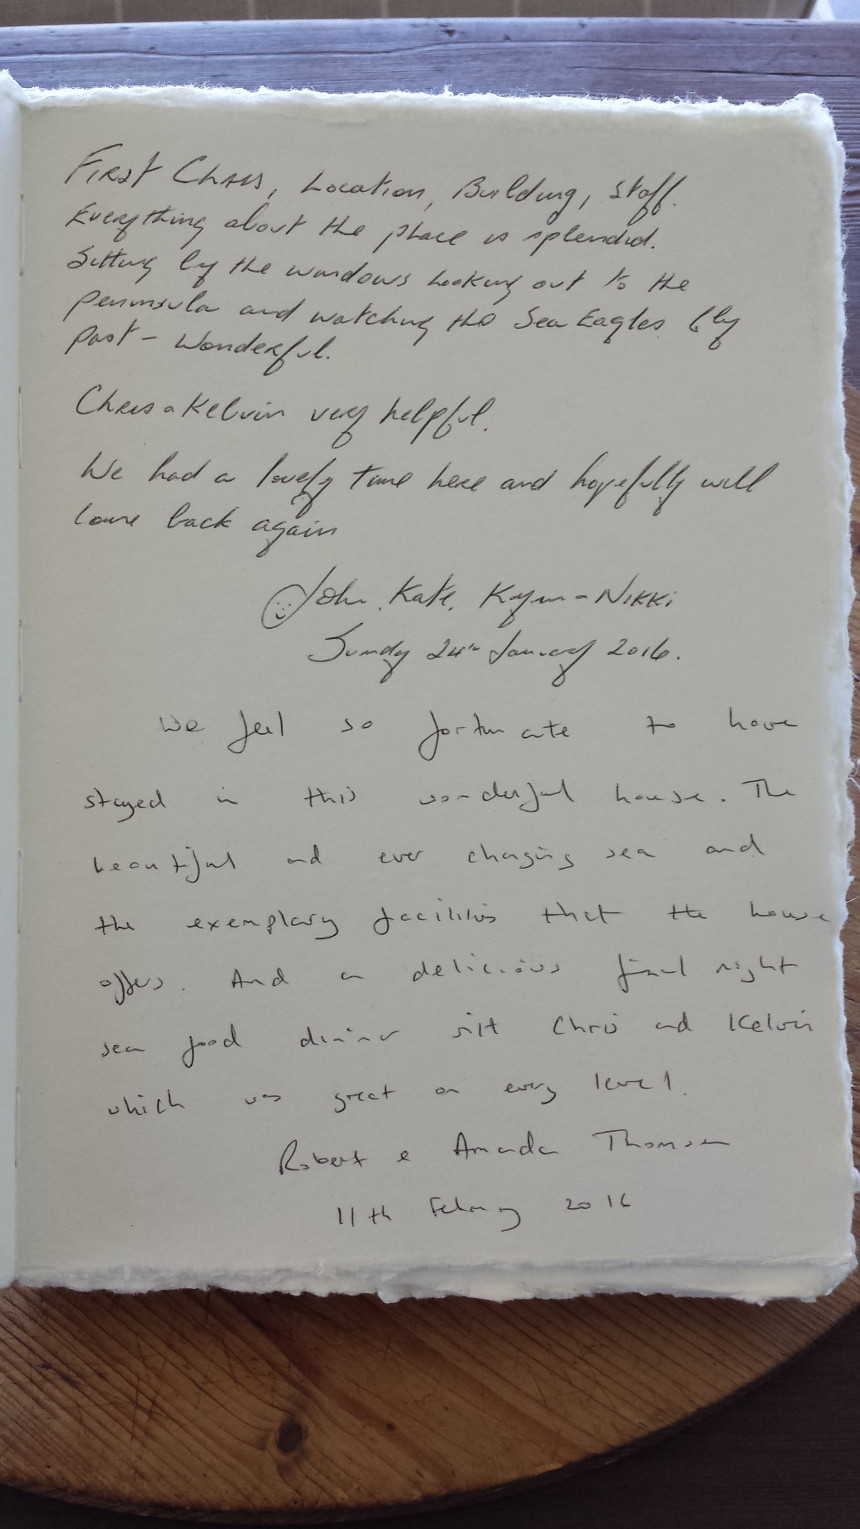 First Class, Location, Building, Staff.
Everything about the place is splendid.
Sitting by the windows looking out to the
peninsula and watching the Sea Eagles fly
past - Wonderful.
Chris & Kelvin very helpful.
We had a lovely time here and hopefully will
come back again
John, Kate, & Nikki
Sunday 24th January 2016.
We feel so fortunate to have
stayed in this wonderful house. The
beautiful and ever changing sea and
the exemplary facilities that the house
offers. And a delicious final night
sea food dinner with Chris and Kelvin
which was great on every level.
Robert & Amanda Thomson
11th February 2016